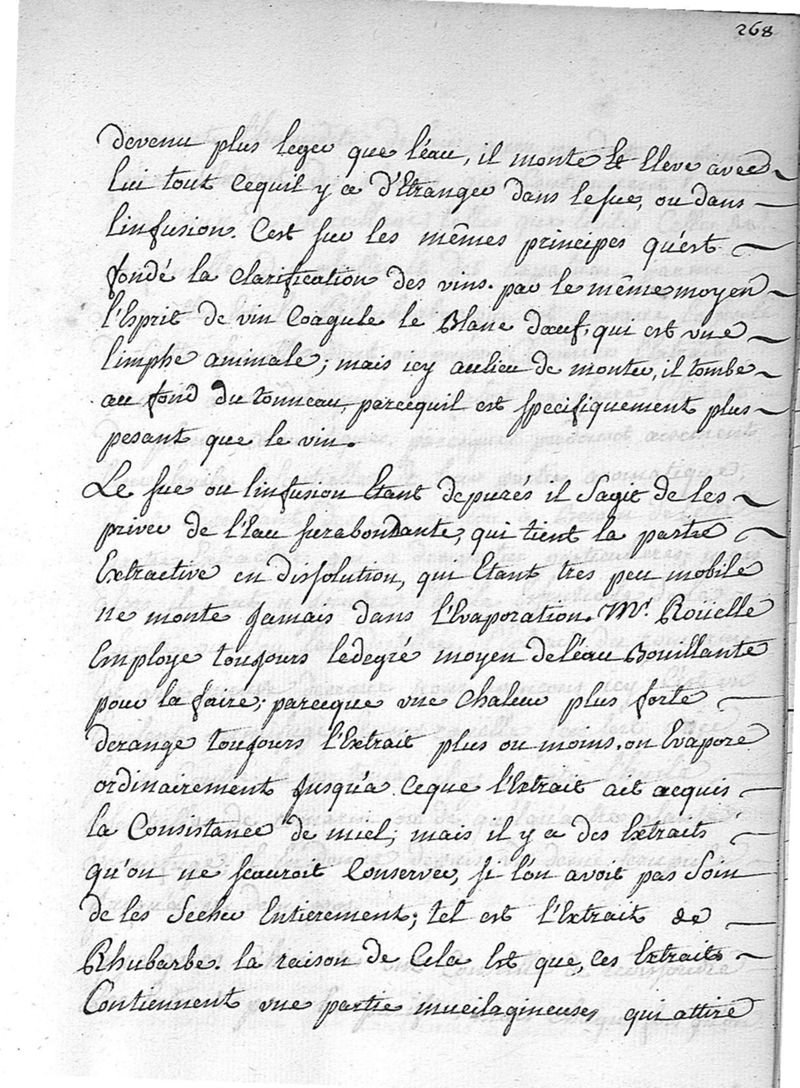 268
devenu plus leger que l'éau, il monte et Eleve avec
lui tout cequil y a d'Etranger dans le suc, ou dans
l'infusion. C'est sur les mêmes principes qu'est
fondé la clarification des vins. par le même moyen
l'Esprit de vin Coagule le Blanc d'œuf, qui est une
limphe animale; mais icy aulieu de monter, il tombe
au fond du tonneau, parcequil est specifiquement plus
pesant que le vin.
Le suc ou l'infusion Etant depurés il s'agit de les
priver de l'Eau surabondante, qui tient la partie
Extractive en dissolution, qui Etant tres peu mobile
ne monte Jamais dans l'Evaporation. Mr. Roüelle
Employe toujours ledegré moyen de l'éau Bouillante
pour la faire; parceque une chaleur plus forte
derange toujours l'Extrait plus ou moins. on Evapore
ordinairement Jusqu'a ceque l'Extrait ait acquis
la Consistance de miel; mais il y a des Extraits
qu'on ne scauroit Conserver, si l'on avoit pas Soin
de les Secher Entierement; tel est l'Extrait de
Rhubarbe. la raison de Cela Est que, ces Extraits
Contiennent une partie mucilagineuses qui attire